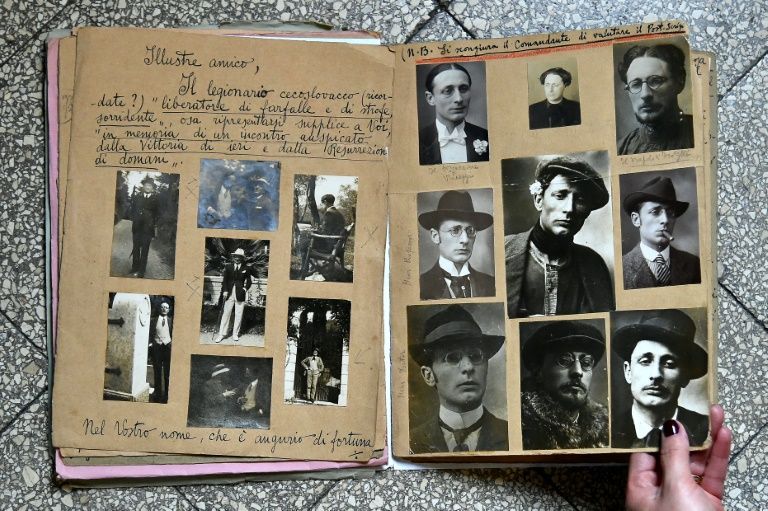 Illustre amico,
Il legionario cecoslovacco (ricor-
date?) "liberatore di farfalle e di strofe,
sorridente", osa ripresentarsi supplice a Voi,
"in memoria di un incontro auspicato
dalla Vittoria di ieri e dalla Resurrezione
di domani".
Nel Vostro nome, che è augurio di fortuna
(N.B. Si scongiura il Comandante di valutare il Post-Scrip